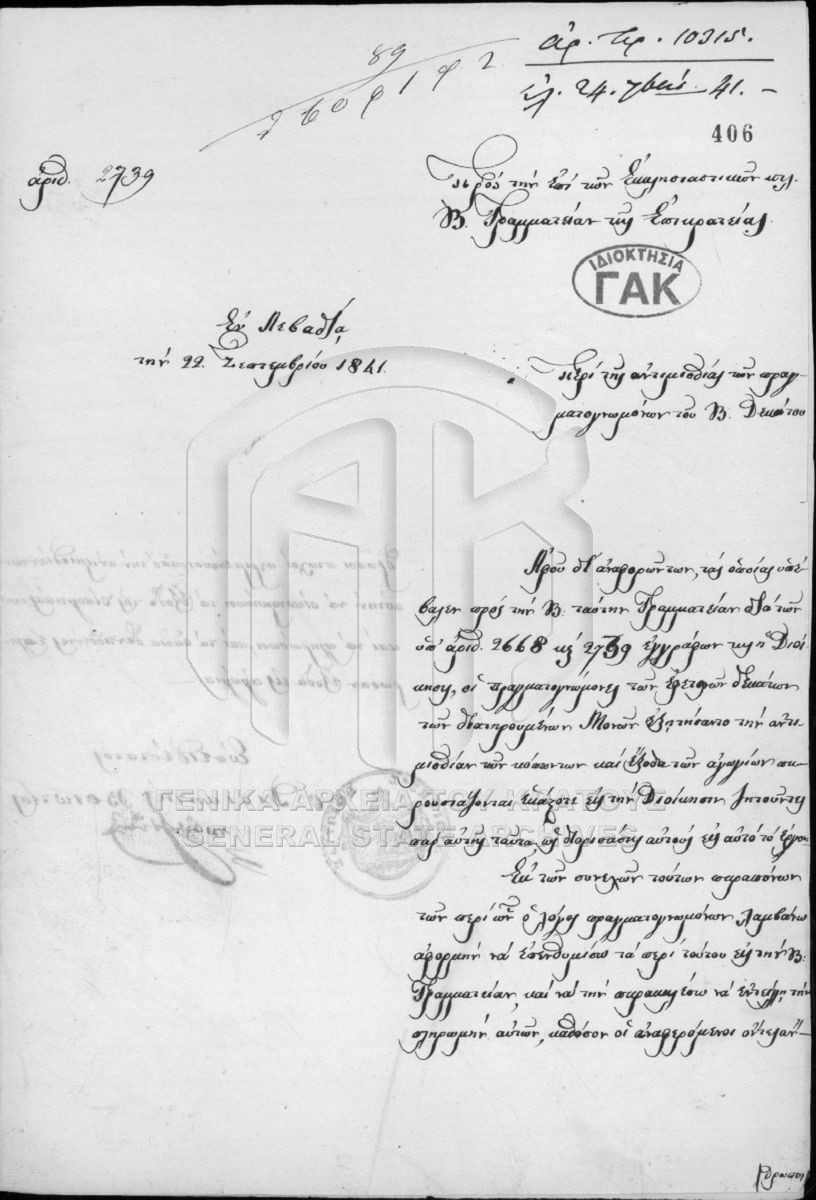 ἀρ. πρ. 10315.
89
ἐλ. 24. 7βρίου 41. –
406
ἀριθ. 2739
Πρὸς τὴν ἐπὶ τῶν Ἐκκλησιαστικῶν κτλ.
Β. Γραμματείαν τῆς Ἐπικρατείας.
ΙΔΙΟΚΤΗΣΙΑ
ΓΑΚ
Ἐν Λεβαδείᾳ
τὴν 22 Σεπτεμβρίου 1841.
Περὶ τῆς ἀντιμισθίας τῶν πραγ-
ματογνωμόνων τοῦ Β. Δεκάτου
Ἀφοῦ δι' ἀναφορῶν των, τὰς ὁποίας ὑπέ-
βαλεν πρὸς τὴν Β. ταύτην Γραμματείαν διὰ τῶν
ὑπ' ἀριθ. 2668 κὲ 2739 ἐγγράφων της ἡ Διοί
κησις, οἱ πραγματογνώμονες τῶν ἐφετεινῶν δεκάτων
τῶν διατηρουμένων Μονῶν ἐζητήσαντο τὴν ἀντι
μισθίαν τῶν κόπων των καὶ ἔξοδα τῶν ἀγωγίων πα
ρουσιάζονται ἑκάστοτε εἰς τὴν Διοίκησιν ζητοῦντες
παρ' αὐτῆς ταῦτα, ὡς διορισάσης αὐτοὺς εἰς αὐτὸ τὸ ἔργον.
Ἐκ τῶν συνεχῶν τούτων παραπόνων
τῶν περὶ ὧν ὁ λόγος πραγματογνωμόνων λαμβάνω
ἀφορμὴν νὰ ὑπενθυμίσω τὰ περὶ τούτου εἰς τὴν Β.
Γραμματείαν, καὶ νὰ τὴν παρακαλέσω νὰ ἐντείλῃ τὴν
πληρωμὴν αὐτῶν, καθόσον οἱ ἀναφερόμενοι ὄντες ἄν-
θρωποι
ΓΕΝΙΚΑ ΑΡΧΕΙΑ ΤΟΥ ΚΡΑΤΟΥΣ
GENERAL STATE ARCHIVES